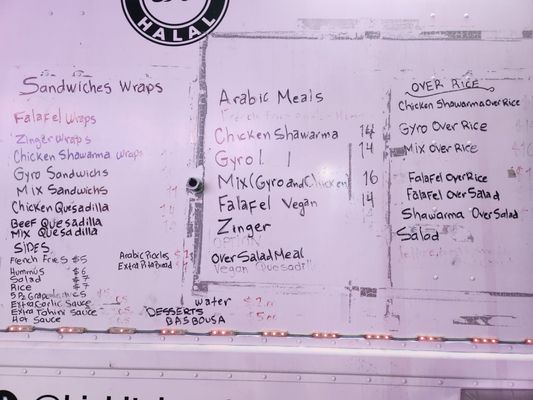 HALAL
Sandwiches Wraps
Falafel Wraps
Zinger Wraps
Chicken Shawarma wraps
Gyro Sandwichs
Mix Sandwichs
Chicken Quesadilla
Beef Quesadilla
Mix Quesadilla
SIDES
French Fries $5
Hummus $6
Salad $7
Rice $7
Extra Garlic Sauce
Extra Tahini Sauce
Hot Sauce
Arabic Pickles
Extra Pita Bread
DESSERTS
BASBOUSA
Arabic Meals
Chicken Shawarma 14
Gyro 14
Mix (Gyro and Chicken) 16
Falafel Vegan 14
Zinger
OPTION
Over Salad Meal
Vegan Quesadill
Water
OVER RICE
Chicken Shawarma Over Rice
Gyro Over Rice
Mix Over Rice
Falafel Over Rice
Falafel Over Salad
Shawarma Over Salad
Salad